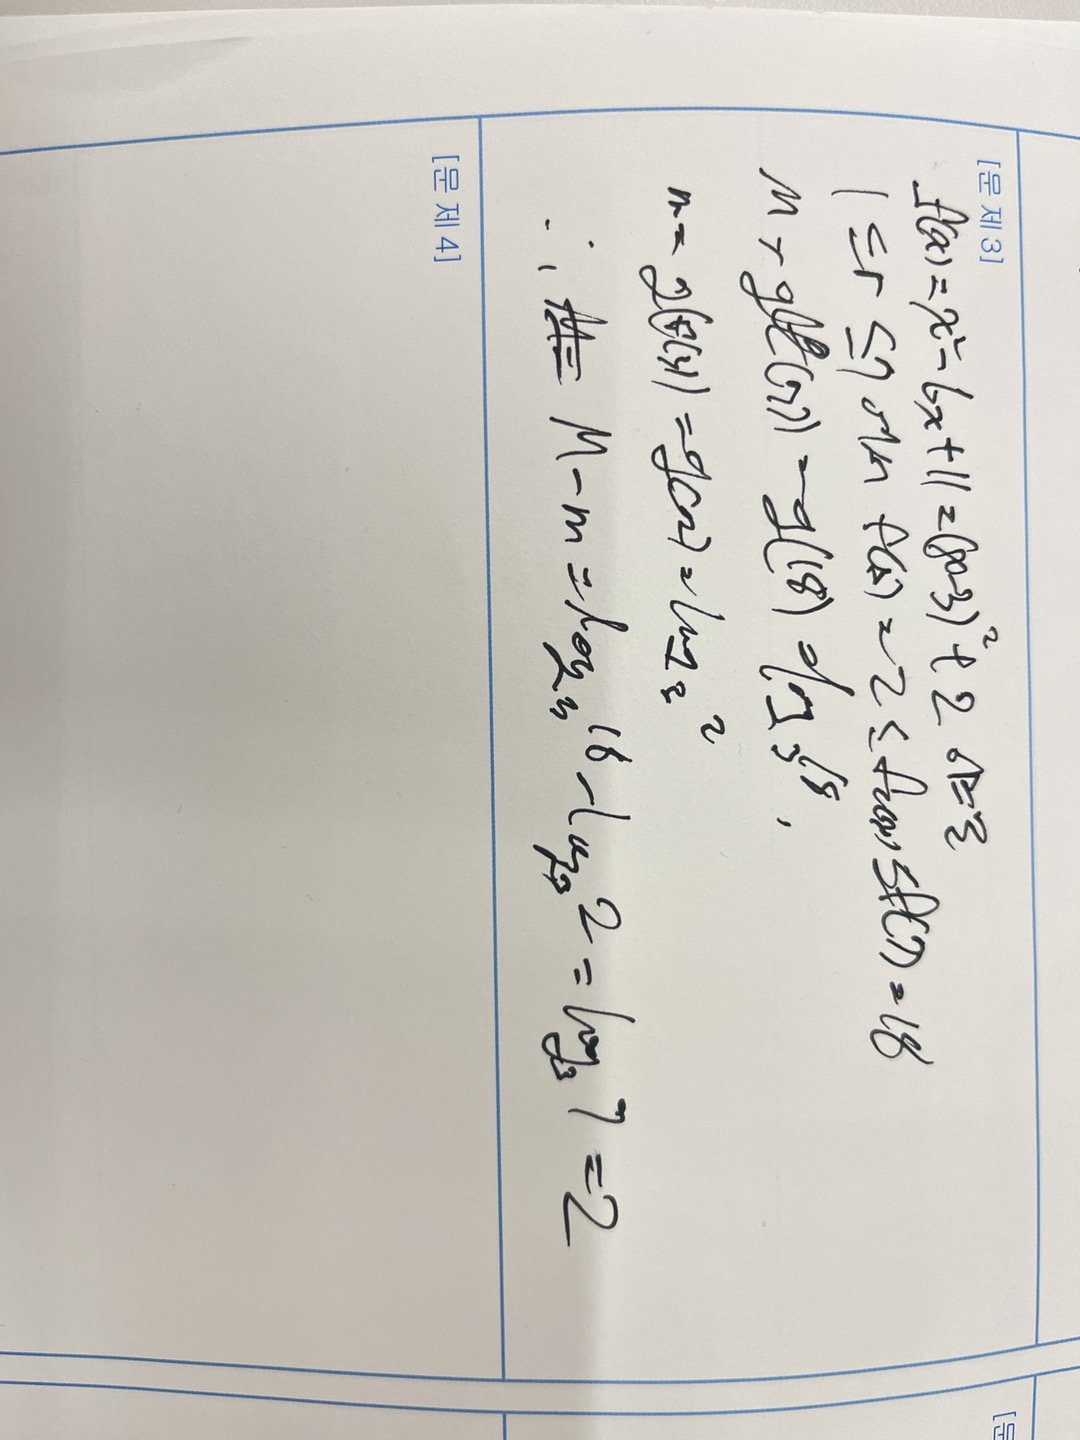 [문제 3]
f(x)=x²-6x+11=(x-3)²+2
1≤x≤7 에서 f(3)=2≤f(x)≤f(7)=18
M=g(f(7))=g(18)=log₃18
m=g(f(3))=g(2)=log₃2
∴ M-m=log₃18-log₃2=log₃9=2
[문제 4]
[문